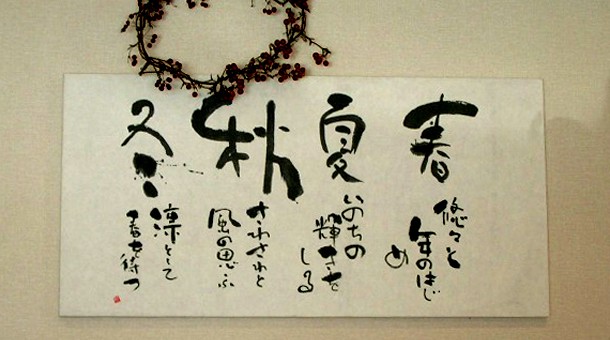 春
悠々と
年のはじ
め
夏
いのちの
輝きを
しる
秋
さわさわと
風の思ふ
冬
凛として
春を待つ